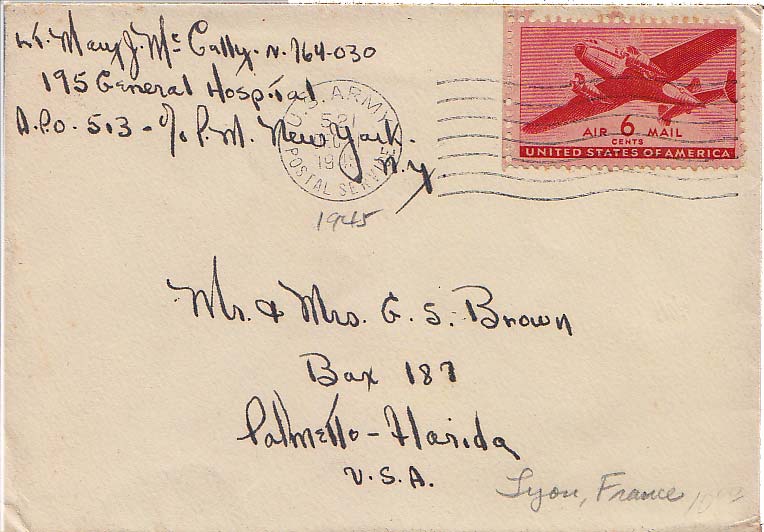 Lt. Mary J. McCally. N. 764-030
195 General Hospital
A.P.O. 513 - % P.M. New York.
N.Y.
U.S. ARMY
521
19
POSTAL SERVICE
1945
AIR 6 MAIL
CENTS
UNITED STATES OF AMERICA
Mr. & Mrs. G. S. Brown
Box 187
Palmetto - Florida
U.S.A.
Lyon, France